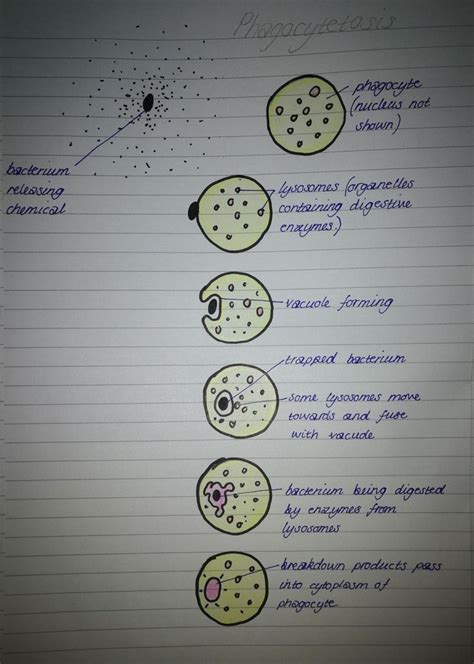 Phagocytetosis
phagocyte
(nucleus not
shown)
bacterium
releasing
chemical
lysosomes (organelles
containing digestive
enzymes.)
vacuole forming
trapped bacterium
some lysosomes move
towards and fuse
with vacuole
bacterium being digested
by enzymes from
lysosomes
breakdown products pass
into cytoplasm of
phagocyte